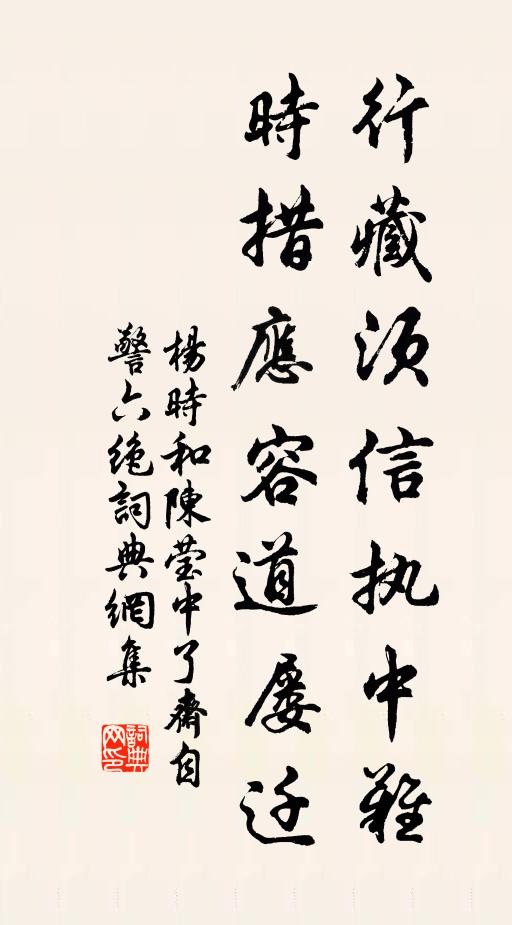 行藏須信执中難
時措應容道屡迁
楊時和陳瑩中了齋自
警六絶詞典網集
詞典网印